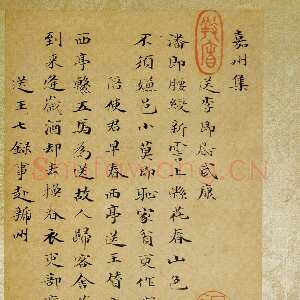 嘉州集
送李郎尉武康
潘郎腰綬新霅上縣花春山色
不須嫌邑小莫即恥家貧更作
陪使君早春西亭送王贊
西亭繫五馬為送故人歸客舍
到來逢歲酒却去換春衣吏部
送王七錄事赴虢州